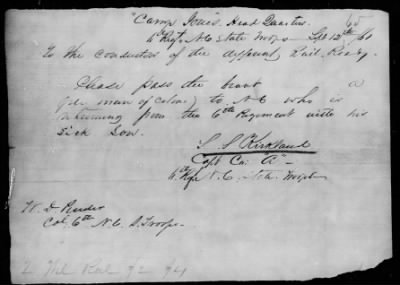 "Camp Jones" Head Quarters 65
6th Regt N.C. State Troops Sept 12th 61
To the conductors of the different Rail Roads
Please pass the bearer a
(free man of color) to N.C who is
returning from the 6th Regiment with his
sick son.
S S Kirkland
Capt Co. "A"
6th Reg N.C. State Troops
W. D Pender
Col. 6th N.C. S. Troops